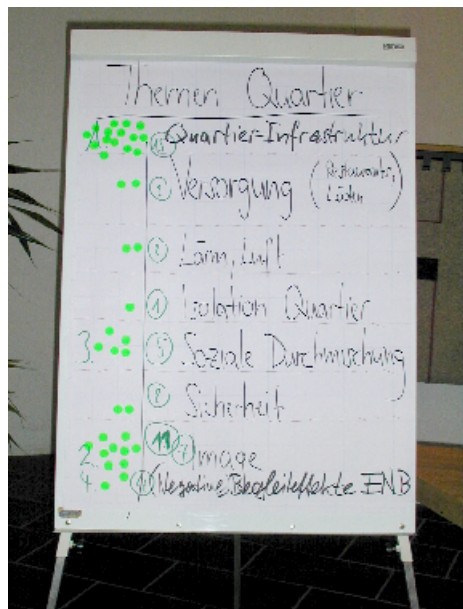 Themen Quartier
1. 15 Quartier-Infrastruktur
2 Versorgung (Restaurants, Läden)
2 Lärm, Luft
1 Isolation Quartier
3. 5 Soziale Durchmischung
2 Sicherheit
2. 11 Image
4. Negative Begleiteffekte ENB